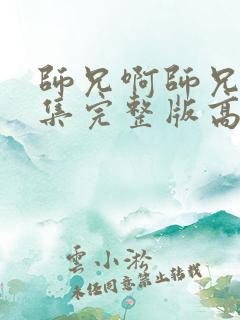 師兄啊師兄
集完整版高
雲小淞
未經同意禁止轉載